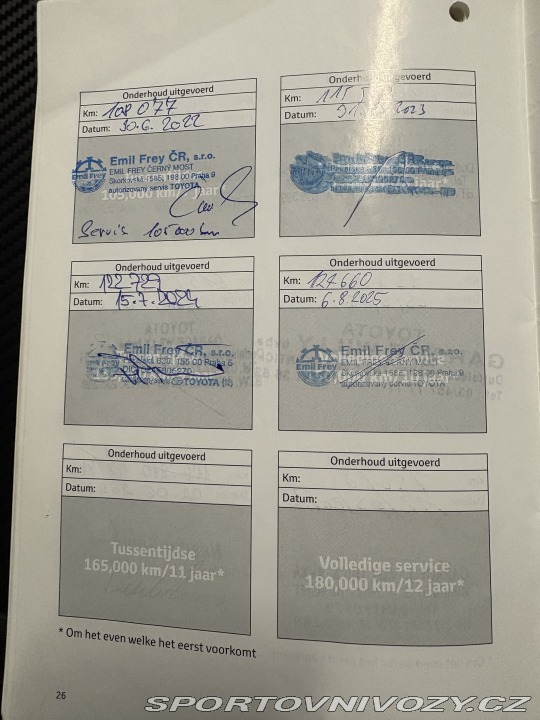 Onderhoud uitgevoerd
Km: 108 077
Datum: 30.6. 2022
Emil Frey ČR, s.r.o.
EMIL FREY ČERNÝ MOST
Skorkovská 1585, 198 00 Praha 9
autorizovaný servis TOYOTA
Emil Frey
165,000 km/ jaar*
Servis 105000 km
Onderhoud uitgevoerd
Km: 115
Datum: 2023
Emil Frey ČR
jaar*
Onderhoud uitgevoerd
Km: 122 729
Datum: 15.7.2024
Emil Frey ČR, s.r.o.
155 00 Praha 5
TOYOTA
Onderhoud uitgevoerd
Km: 127660
Datum: 6.8.2025
Emil Frey ČR, s.r.o.
Emil Frey
Skorkovská 1585, 198 00 Praha 9
autorizovaný servis TOYOTA
km/11 jaar*
Onderhoud uitgevoerd
Km:
Datum:
Tussentijdse
165,000 km/11 jaar*
Onderhoud uitgevoerd
Km:
Datum:
Volledige service
180,000 km/12 jaar*
* Om het even welke het eerst voorkomt
26
SPORTOVNIVOZY.CZ